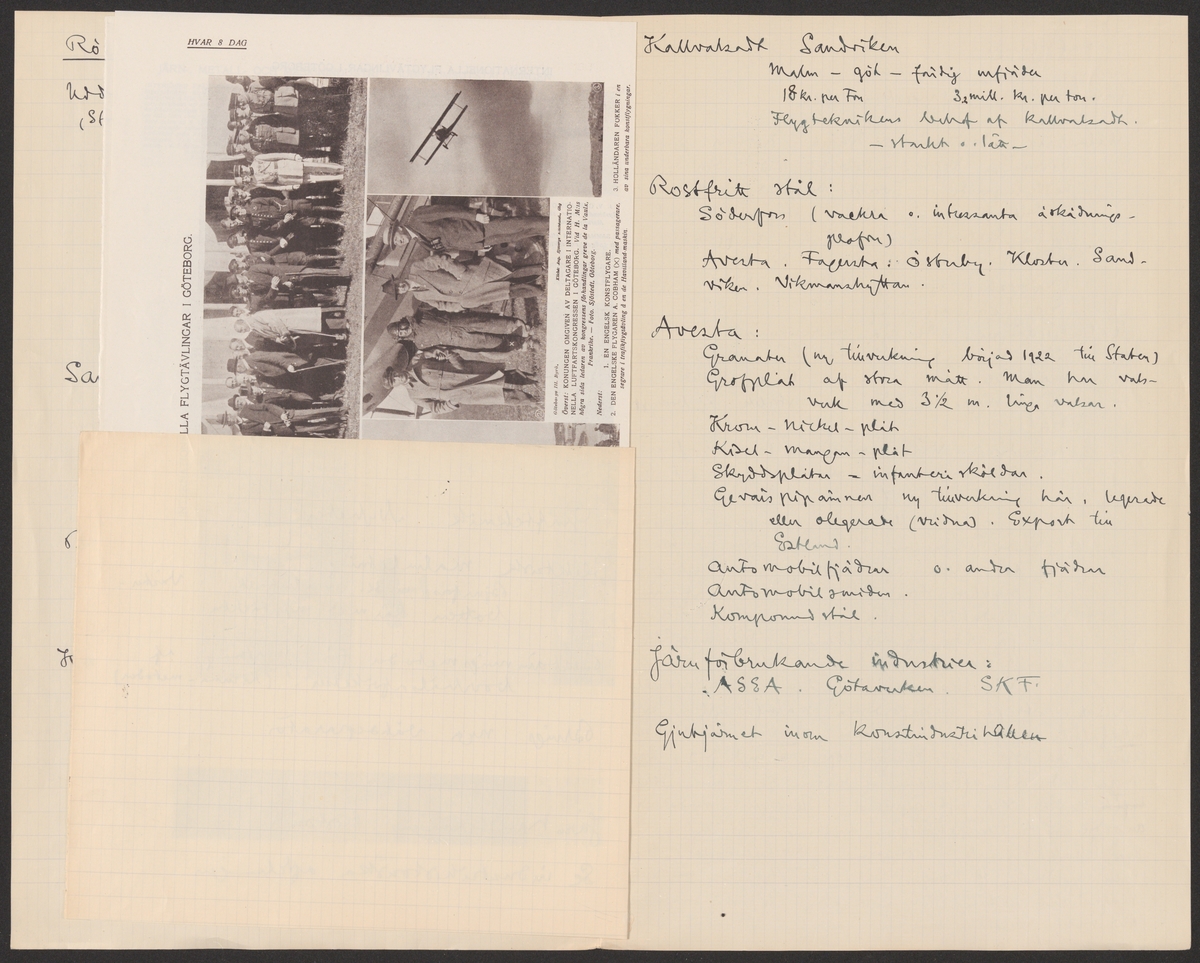 Rö
Udd
(St
Sa
HVAR 8 DAG
LLA FLYGTÄVLINGAR I GÖTEBORG.
Överst: KONUNGEN OMGIVEN AV DELTAGARE I INTERNATIO-
NELLA LUFTFARTSKONGRESSEN I GÖTEBORG. Vid H. M:s
högra sida ledaren av kongressens förhandlingar greve de la Vaulx,
Frankrike. — Foto. Sjöstedt, Göteborg.
Nederst:
1. EN ENGELSK KONSTFLYGARE.
2. DEN ENGELSKE FLYGAREN A. COBHAM (X) med passagerare,
segrare i trafikflygtävling å en de Havilland-maskin
3. HOLLÄNDAREN FOKKER i en
av sina underbara konstflygningar.
Kallvalsadt Sandviken
Malm – göt – färdig urfjäder
18 kr. per Ton 3 mill. kr. per ton.
Flygteknikens behof af kallvalsadt.
– starkt o. lätt –
Rostfritt stål:
Söderfors (vackra o. intressanta åskådnings-
Avesta. Fagersta. Österby. Kloster. Sand-
viken. Vikmanshyttan.
Avesta:
Granater (ny tillverkning börjad 1922 till Staten)
Grofplåt af stora mått. Man har vals-
verk med 3½ m. långa valsar.
Krom – nickel – plåt
Kisel – mangan – plåt
Skyddsplåtar – infanterisköldar.
Gevärspipämnen ny tillverkning här, legerade
eller olegerade (vridna). Export till
Estland.
Automobilfjädrar o. andra fjädrar
Automobilsmiden.
Kompoundstål.
Järnförbrukande industrier:
ASEA. Götaverken. SKF.
Gjutjärnet inom konstindustrihallen